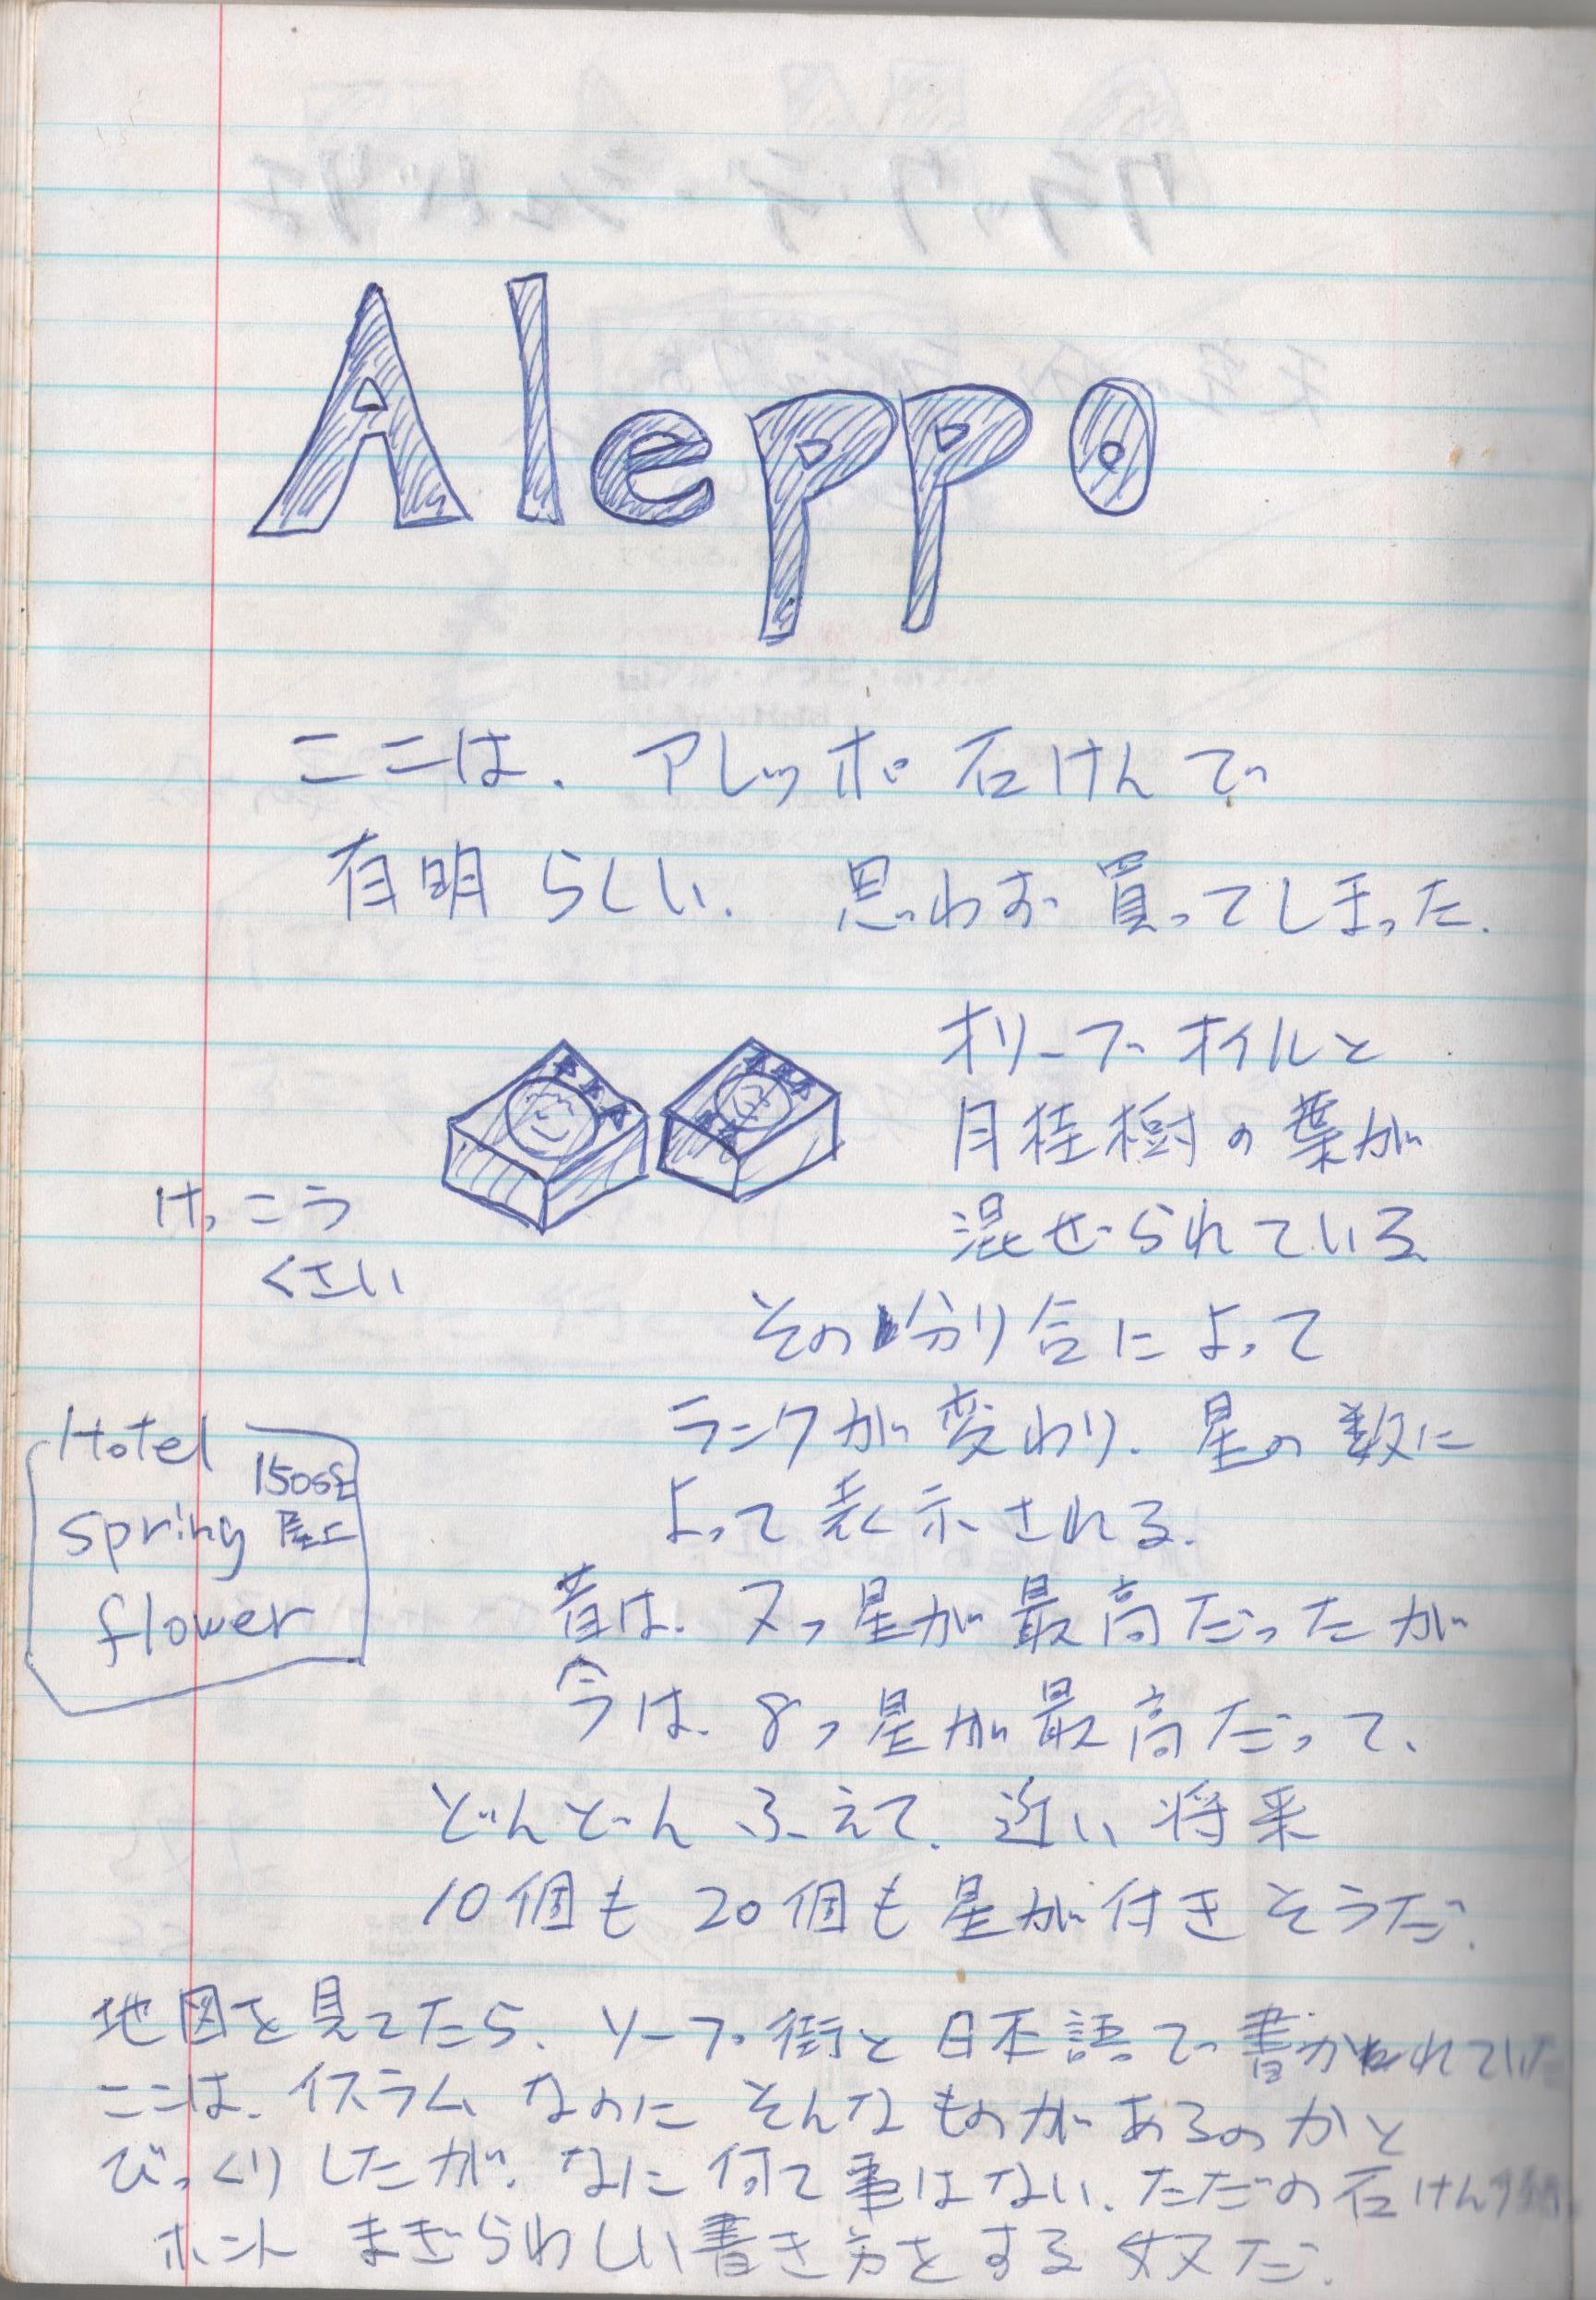 Aleppo
ここは、アレッポ石けんで
有明らしい、思わず買ってしまった.
オリーブオイルと
月桂樹の葉が
混ぜられている
けっこう
くさい
その分り合によって
ランクが変わり、星の数に
よって表示される.
Hotel
150
spring 屋上
flower
昔は、7つ星が最高だったが
今は、8つ星が最高だって、
どんどんふえて、近い将来
10個も20個も星が付きそうだ.
地図を見てたら、ソープ街と日本語で書かれていた
ここは、イスラムなのにそんなものがあるのかと
びっくりしたが、なに何て事はない、ただの石けん
ホントまぎらわしい書き方をする奴だ.